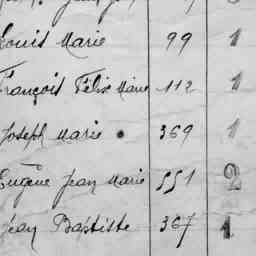 Louis Marie 99 1
François Félix Marie 112 1
Joseph Marie 369 1
Eugène Jean Marie 551 2
Jean Baptiste 367 1